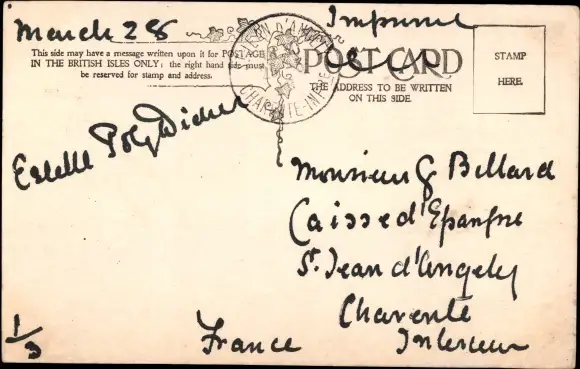 March 28
Imprimé
This side may have a message written upon it for POSTAGE
IN THE BRITISH ISLES ONLY; the right hand side must
be reserved for stamp and address.
POST CARD
THE ADDRESS TO BE WRITTEN
ON THIS SIDE.
STAMP
HERE.
D'ANGELY
CHARENTE-INFRE
Monsieur G Billard
Caisse d'Epargne
St. Jean d'Angely
Charente
Inferieur
France
1/3